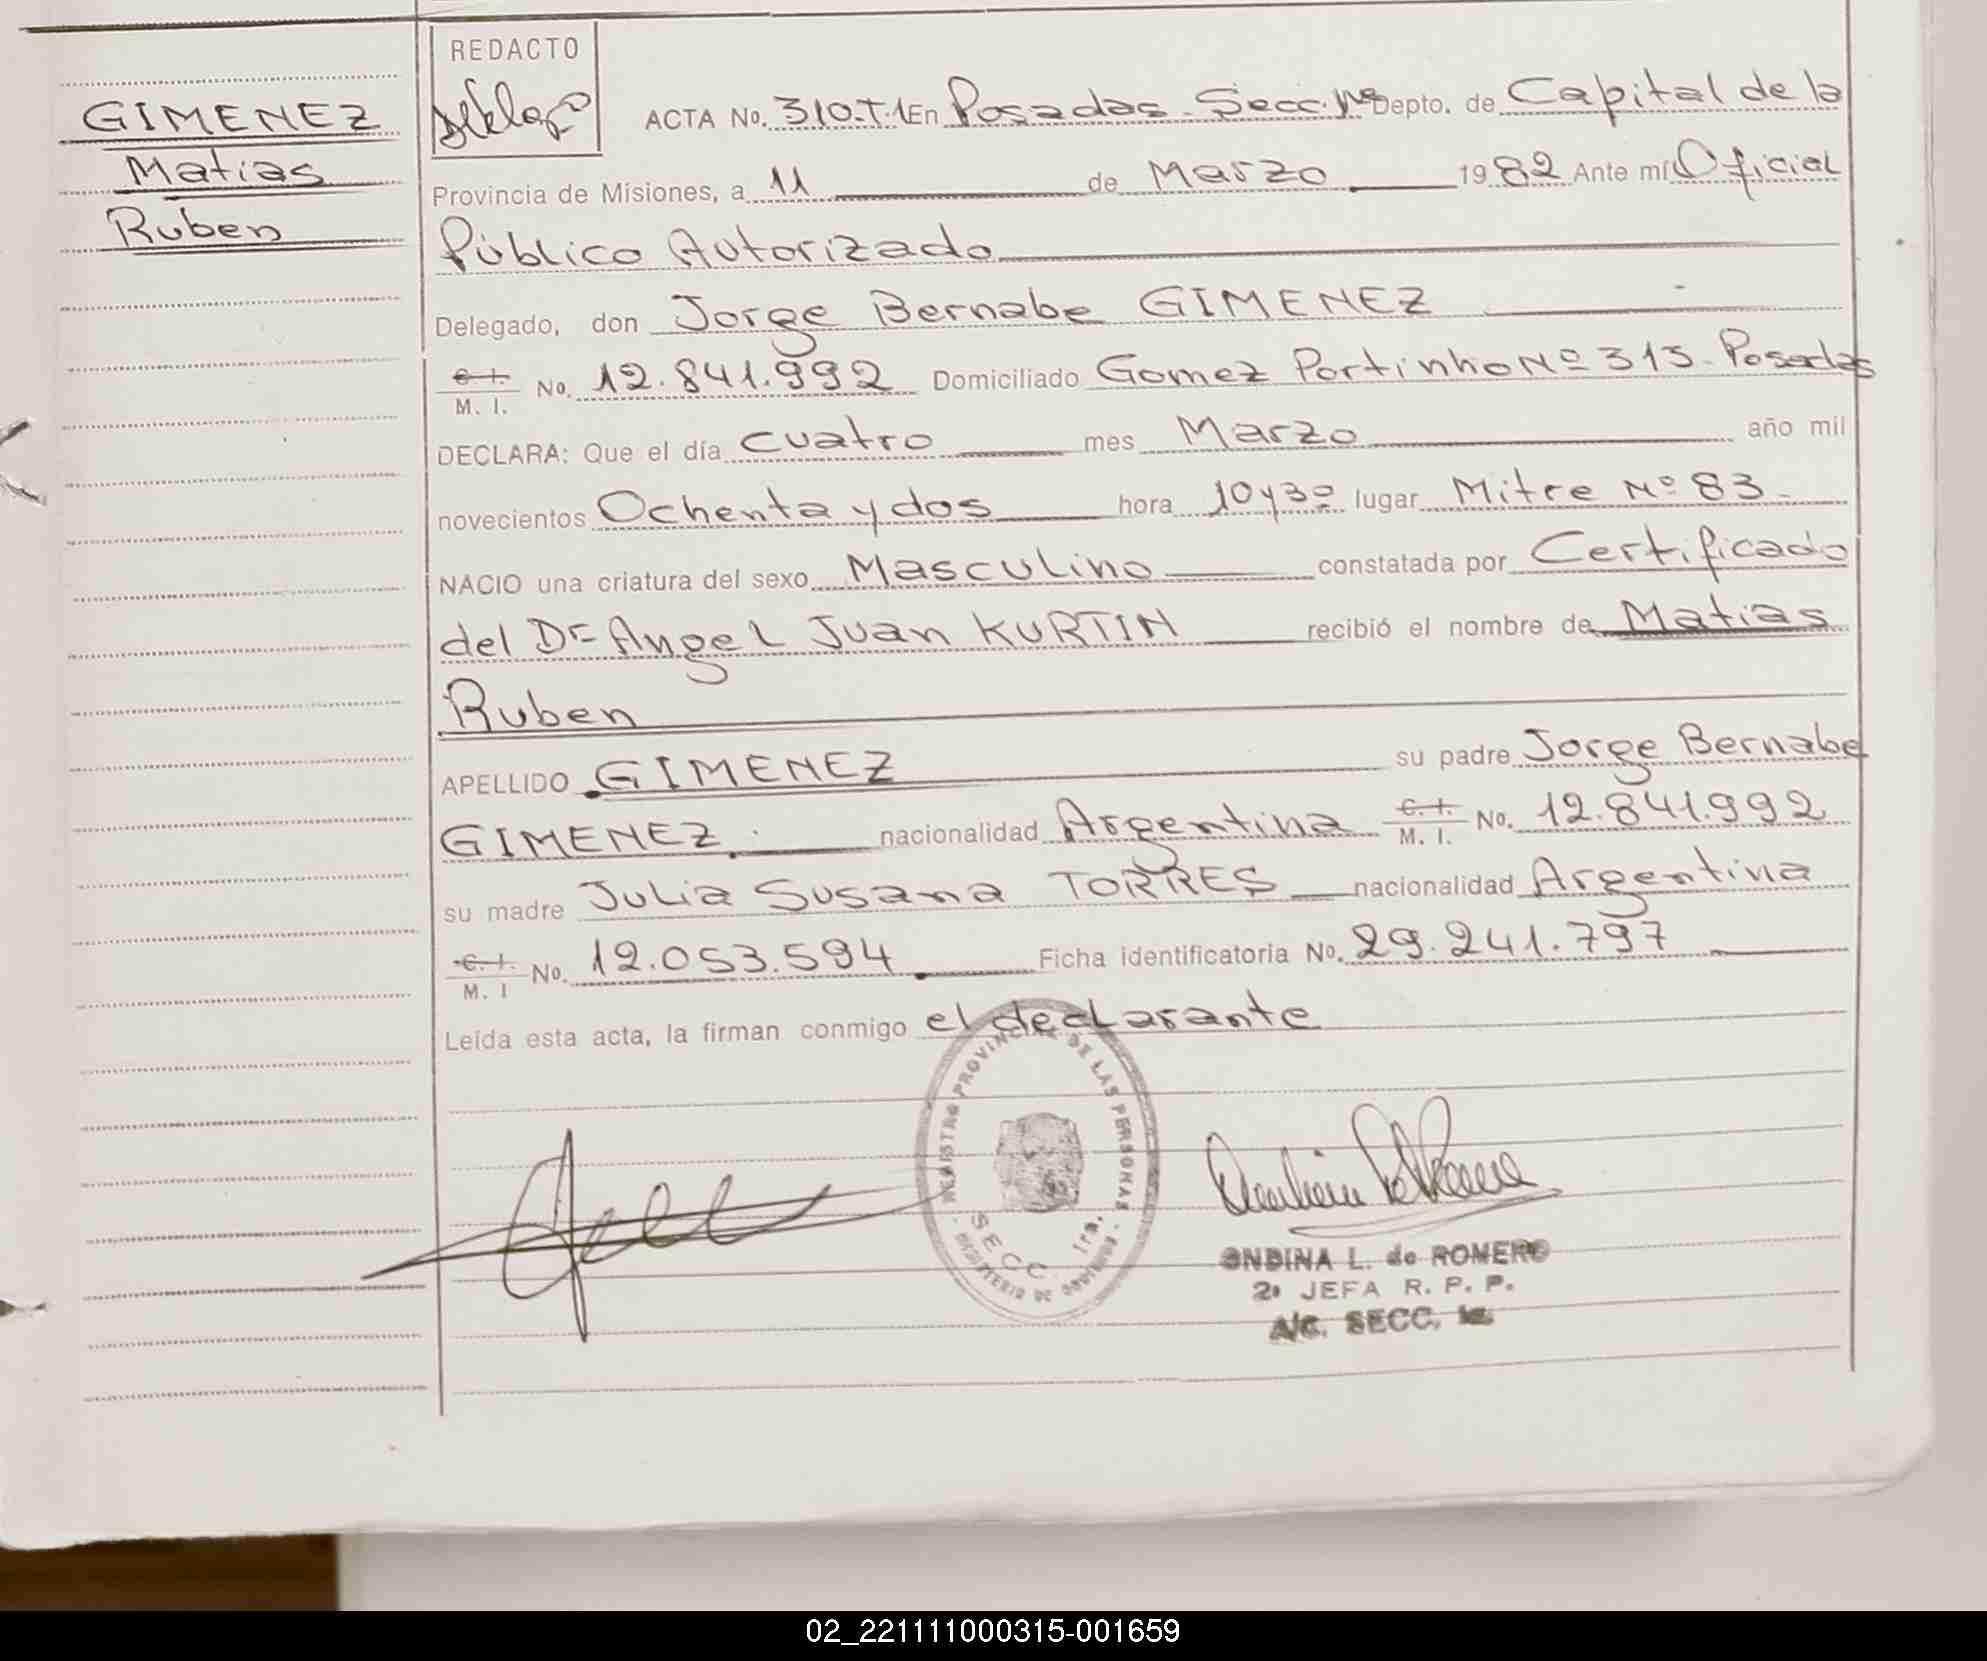 REDACTO
GIMENEZ
Matias
Ruben
ACTA No. 310.T.1 En Posadas Secc. 1ª Depto. de Capital de la
Provincia de Misiones, a 11 de Marzo 1982 Ante mí Oficial
Público Autorizado
Delegado, don Jorge Bernabe GIMENEZ
C. I.
M. I. No. 12.841.992 Domiciliado Gomez Portinho Nº 313 - Posadas
DECLARA: Que el día cuatro mes Marzo año mil
novecientos Ochenta y dos hora 10 y 30 lugar Mitre Nº 83
NACIO una criatura del sexo Masculino constatada por Certificado
del Dr Angel Juan KURTIN recibió el nombre de Matias
Ruben
APELLIDO GIMENEZ su padre Jorge Bernabe
GIMENEZ nacionalidad Argentina C. I.
M. I. No. 12.841.992
su madre Julia Susana TORRES nacionalidad Argentina
C. I.
M. I No. 12.053.594 Ficha identificatoria No. 29.241.797
Leída esta acta, la firman conmigo el declarante
REGISTRO PROVINCIAL DE LAS PERSONAS
MINISTERIO DE GOBIERNO
SECC. 1ra.
ONDINA L. de ROMERO
2ª JEFA R. P. P.
A/C. SECC. 1a.
02_221111000315-001659